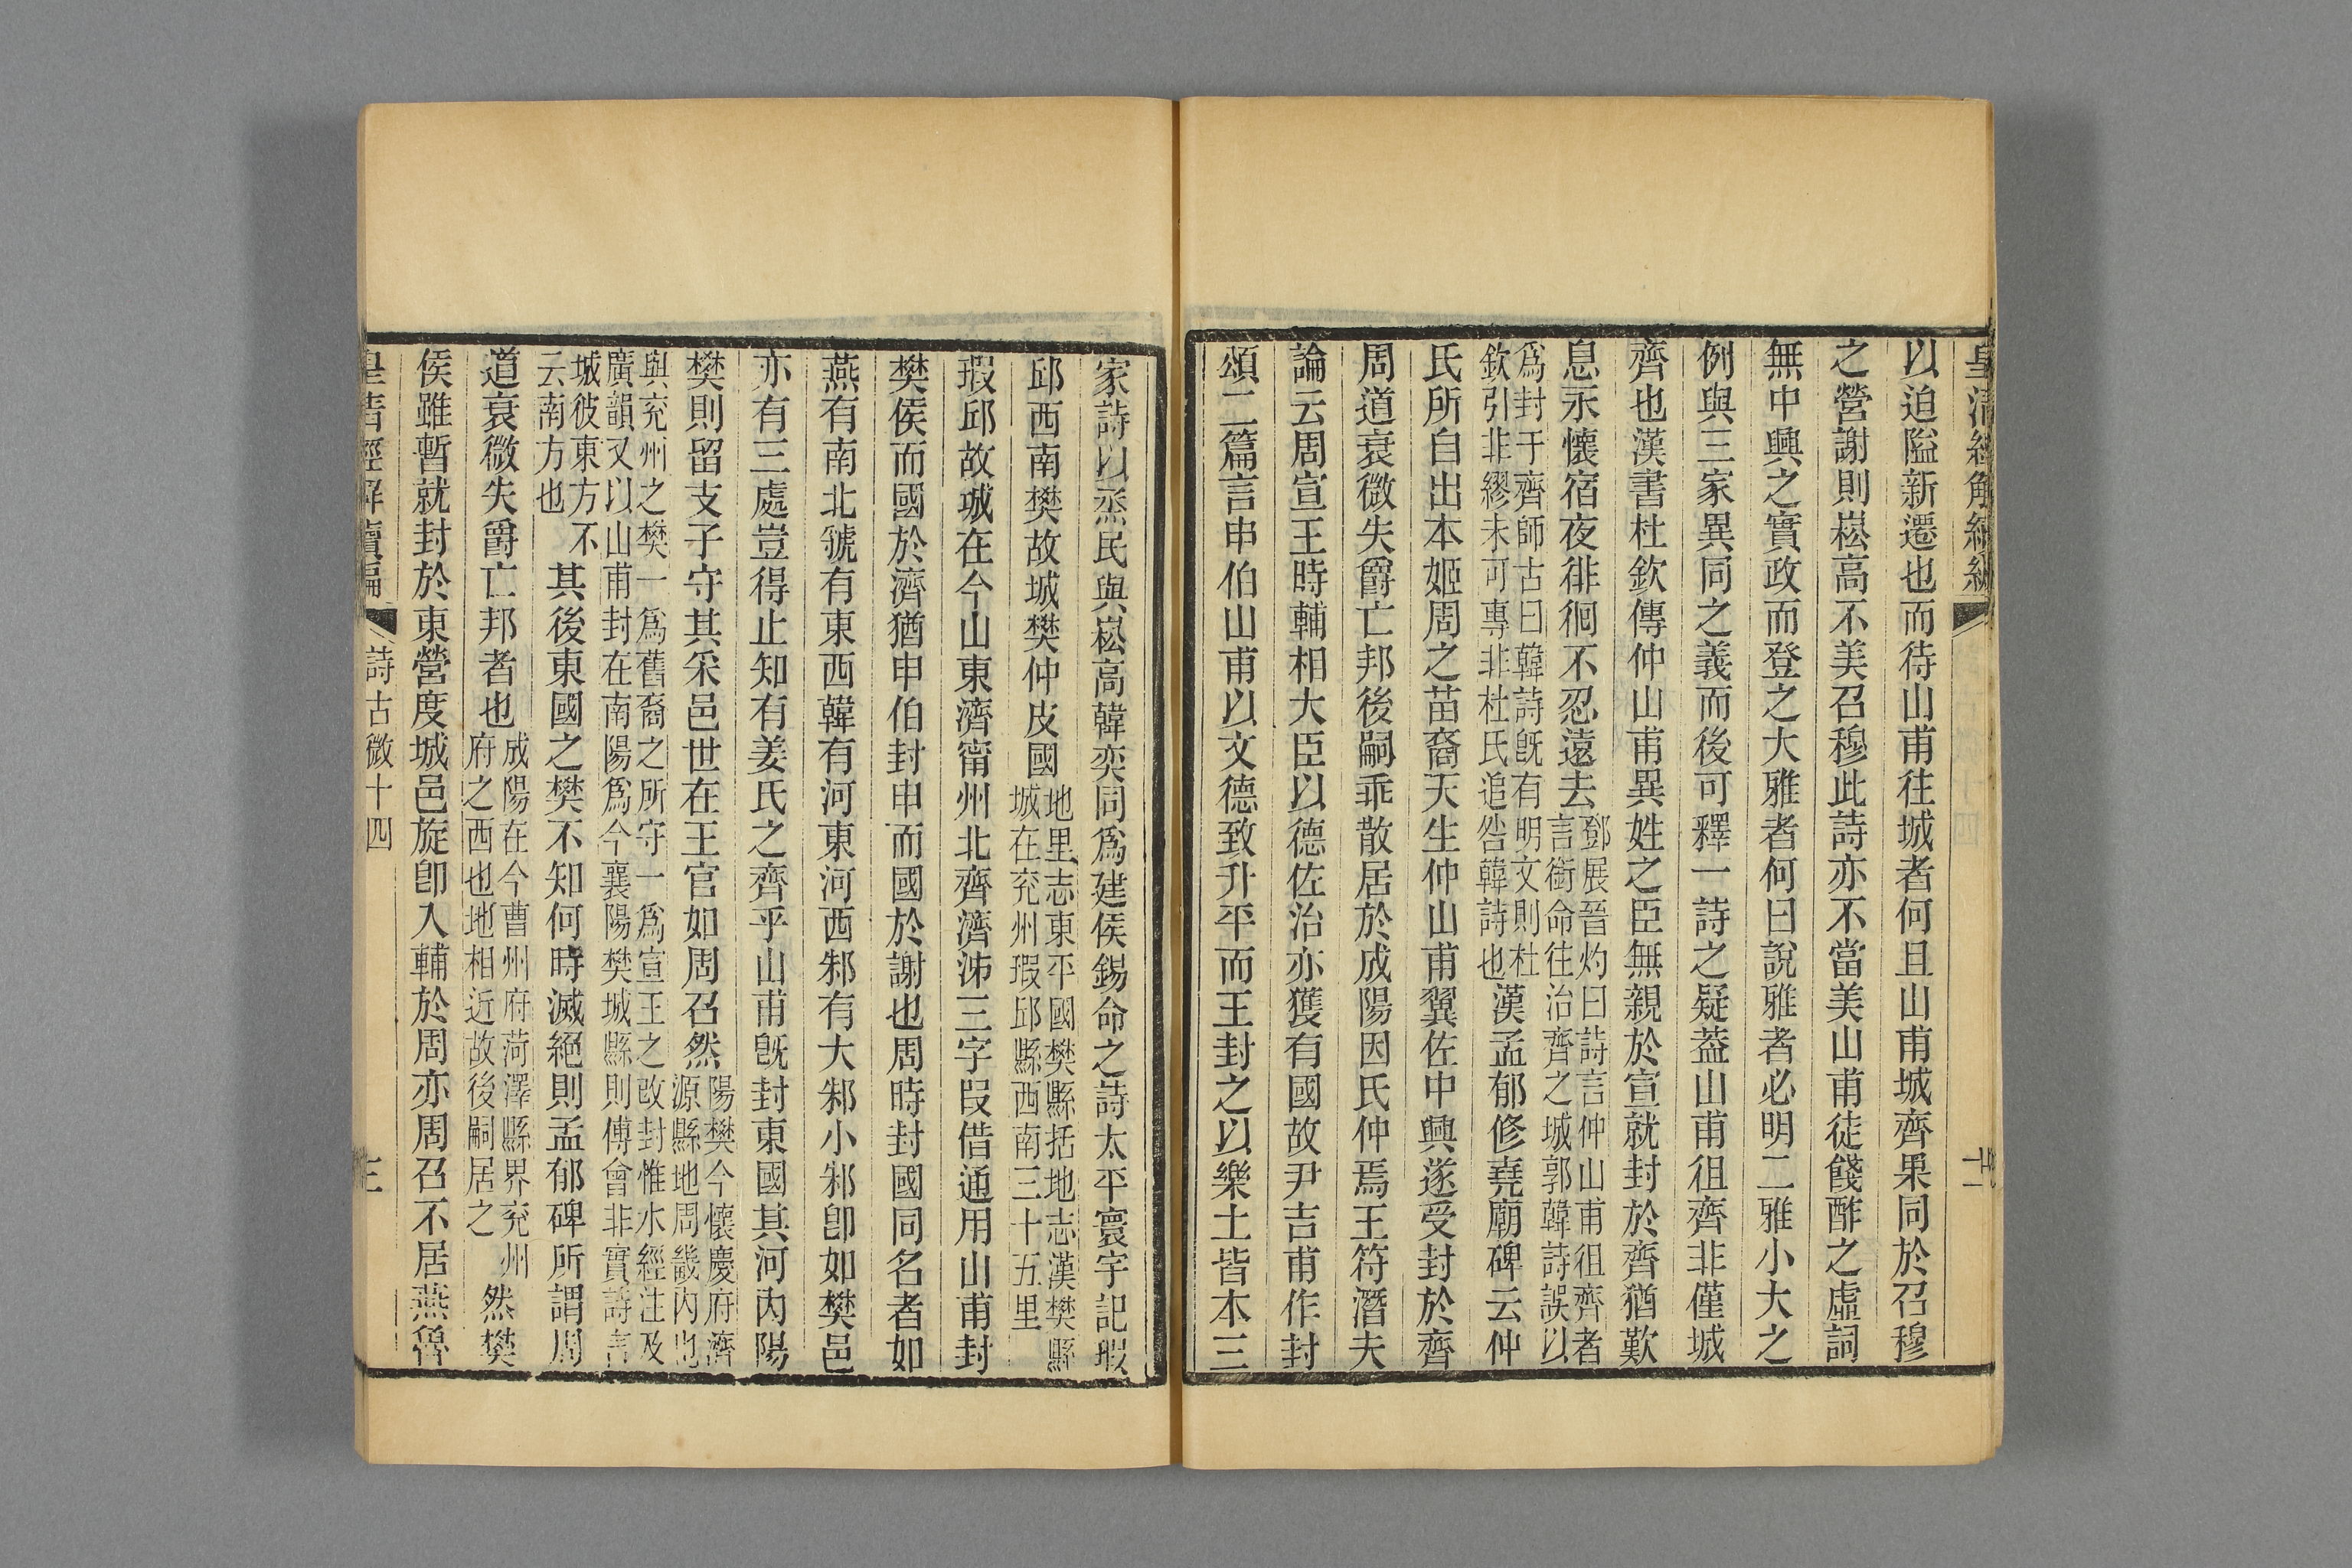 皇清經解續編
以迫隘新遷也而待山甫往城者何且山甫城齊果同於召穆
之營謝則崧高不美召穆此詩亦不當美山甫徒餞酢之虛詞
無中興之實政而登之大雅者何曰說雅者必明二雅小大之
例與三家異同之義而後可釋一詩之疑葢山甫徂齊非僅城
齊也漢書杜欽傳仲山甫異姓之臣無親於宣就封於齊猶歎
息永懷宿夜徘徊不忍遠去鄧展晉灼曰詩言仲山甫徂齊者言銜命往治齊之城郭韓詩誤以
爲封于齊師古曰韓詩旣有明文則杜欽引非繆未可專非杜氏追咎韓詩也漢孟郁修堯廟碑云仲
氏所自出本姬周之苗裔天生仲山甫翼佐中興遂受封於齊
周道衰微失爵亡邦後嗣乖散居於成陽因氏仲焉王符潛夫
論云周宣王時輔相大臣以德佐治亦獲有國故尹吉甫作封
頌二篇言申伯山甫以文德致升平而王封之以樂土皆本三
家詩以烝民與崧高韓奕同爲建侯錫命之詩太平寰宇記瑕
邱西南樊故城樊仲皮國地里志東平國樊縣括地志漢樊縣城在兖州瑕邱縣西南三十五里
瑕邱故城在今山東濟甯州北齊濟泲三字叚借通用山甫封
樊侯而國於濟猶申伯封申而國於謝也周時封國同名者如
燕有南北虢有東西韓有河東河西邾有大邾小邾卽如樊邑
亦有三處豈得止知有姜氏之齊乎山甫旣封東國其河內陽
樊則留支子守其采邑世在王官如周召然陽樊今懷慶府濟源縣地周畿內也
與兖州之樊一爲舊裔之所守一爲宣王之改封惟水經注及廣韻又以山甫封在南陽爲今襄陽樊城縣則傅會非實詩言
城彼東方不云南方也其後東國之樊不知何時滅絕則孟郁碑所謂周
道衰微失爵亡邦者也成陽在今曹州府菏澤縣界兖州府之西也地相近故後嗣居之然樊
侯雖暫就封於東營度城邑旋卽入輔於周亦周召不居燕魯
皇清經解續編 詩古微十四